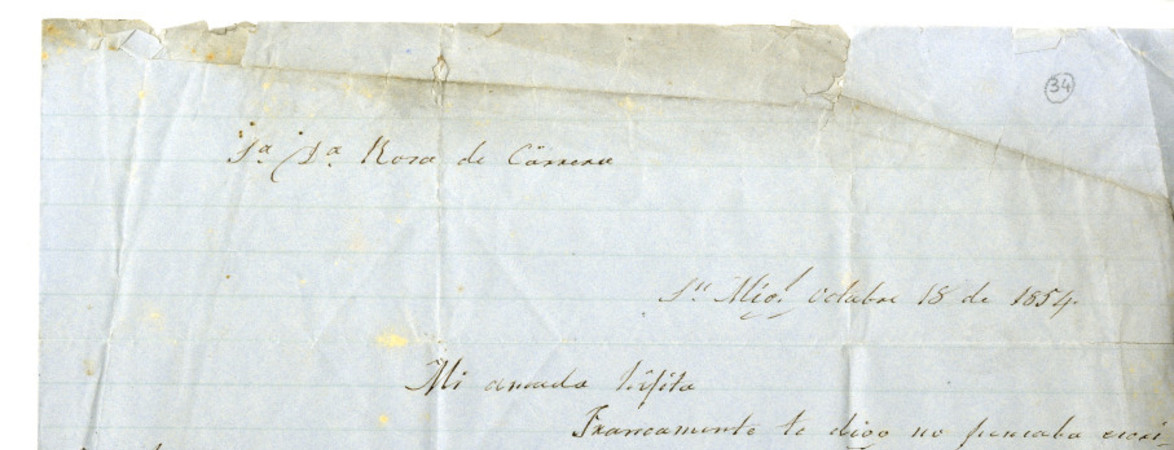 34
Sª Dª Rosa de Carrera
Sn Migl Octubre 18 de 1854
Mi amada
Francamente te digo no pensaba escri-